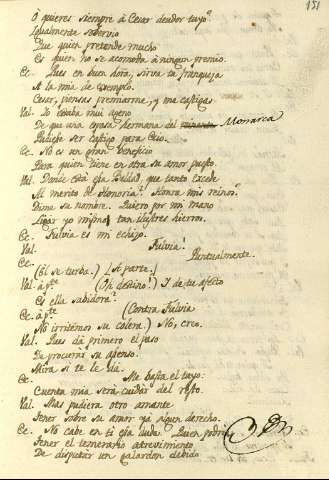 151
O quieres siempre à Cesar deudor tuyo?
Igualmente sobervio
Que quien pretende mucho
Es quien no se acomoda à ningun premio.
Ec. Pues en buen hora, sirva tu franqueza
A la mia de exemplo.
Cesar, piensas premiarme, y me castigas
Val. Yo estaba muy ageno
De que una esposa hermana del Monarca
Pudiese ser castigo para Ecio.
Ec. No es un gran beneficio
Para quien tiene en otra su amor puesto.
Val. Donde está esa beldad, que tanto excede
Al merito de Honoria? Honra mis
Dime su nombre. Quiero por mi mano
Ligar yo mismo tan ilustres hierros.
Ec. Fulvia es mi echizo.
Val. Fulvia!
Ec. Puntualmente.
(El se turba.) [Aparte.]
Val. à pte (Oh destino!) Y de tu afecto
Es ella sabidora?
Ec. à pte (Contra Fulvia
No irritemos su colera.) No, creo.
Val. Pues dà primero el paso
De procurar su asenso.
Mira si te le dà.
Ec. Me basta el tuyo:
Cuenta mia será cuidar del resto.
Val. Mas pudiera otro amante
Tener sobre su amor ya algun derecho.
Ec. No cabe en ti esa duda. Quien podria
Tener el temerario atrevimiento
De disputar un galardon debido